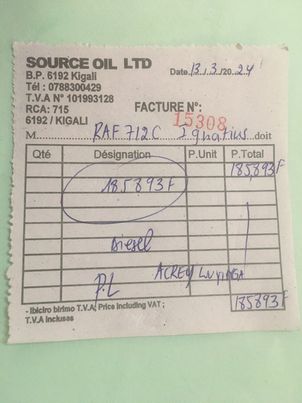 SOURCE OIL LTD
B.P. 6192 Kigali
Tél : 0788300429
T.V.A N° 101993128
RCA: 715
6192 / KIGALI
Date 13/3/2024
FACTURE N°:
15308
M RAF 712 C Ignatius doit
Qté Désignation P.Unit P.Total
185,893F
185893F
Diesel
P.L
185893F
- Ibiciro birimo T.V.A; Price including VAT ;
T.V.A incluses